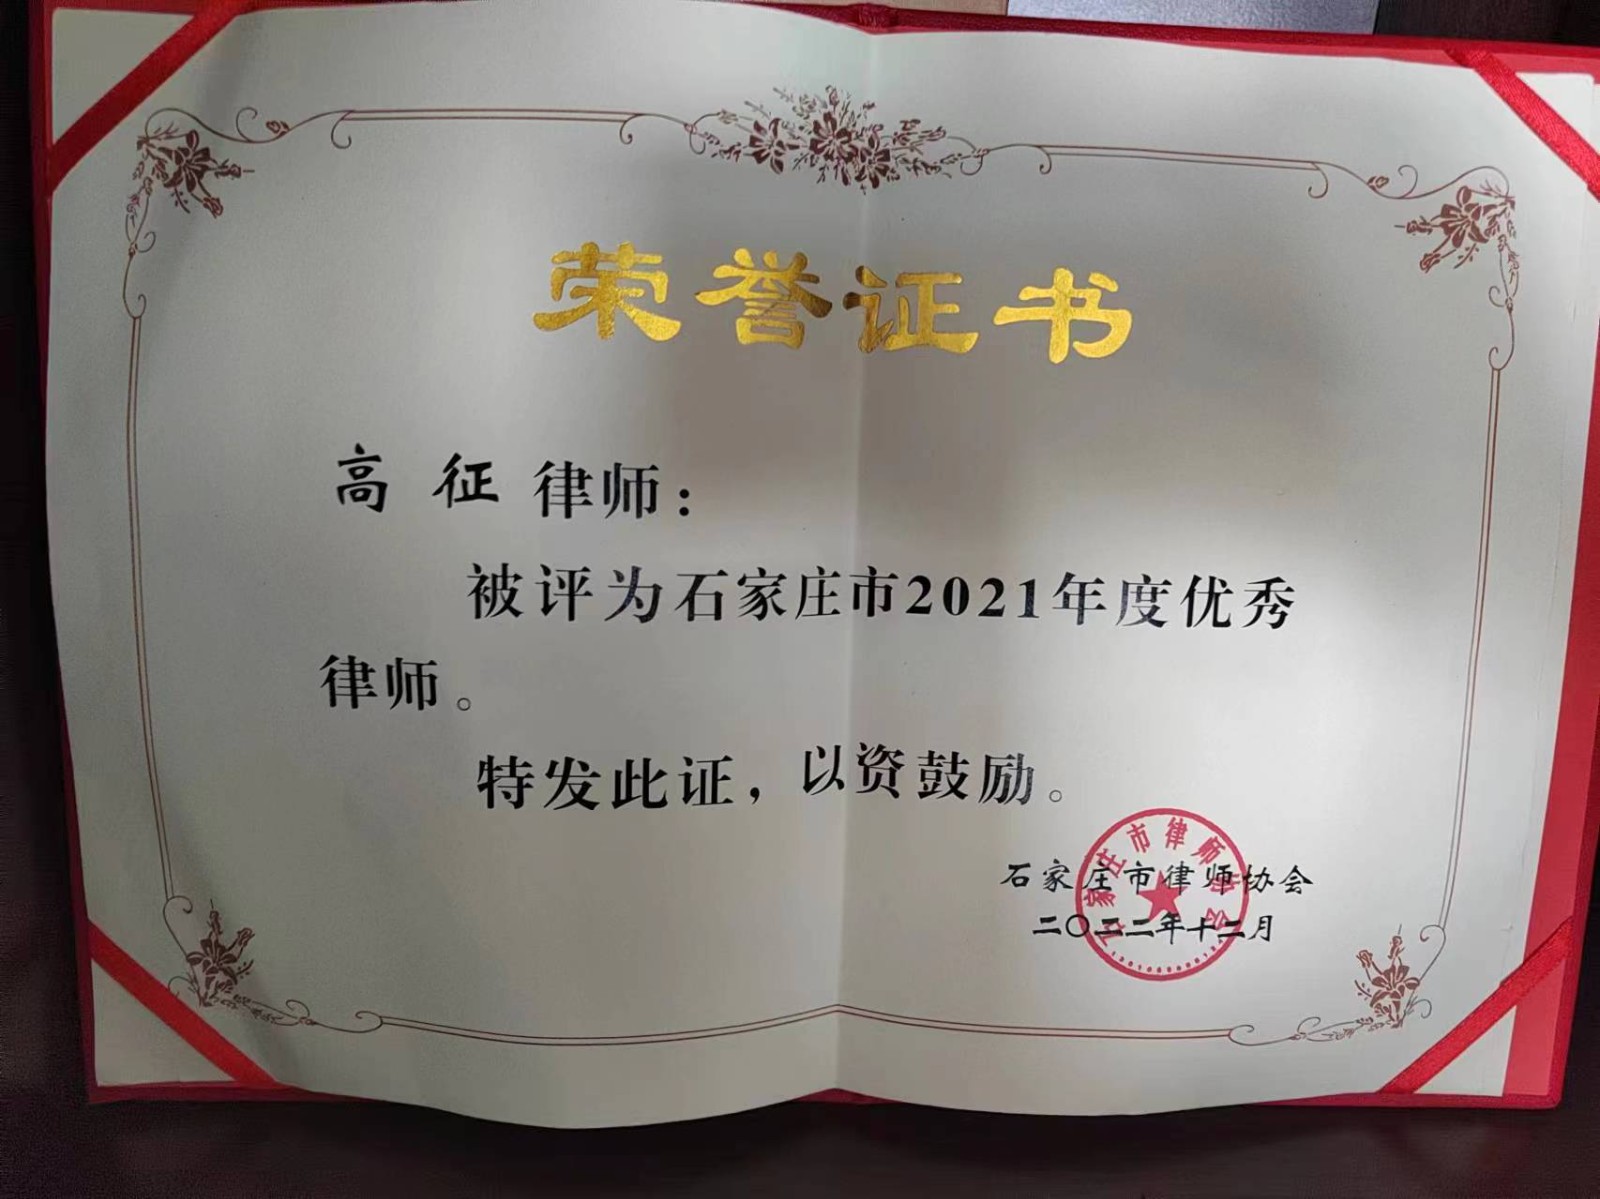 荣誉证书
高征律师：
被评为石家庄市2021年度优秀
律师。
特发此证，以资鼓励。
石家庄市律师协会
二〇二二年十二月